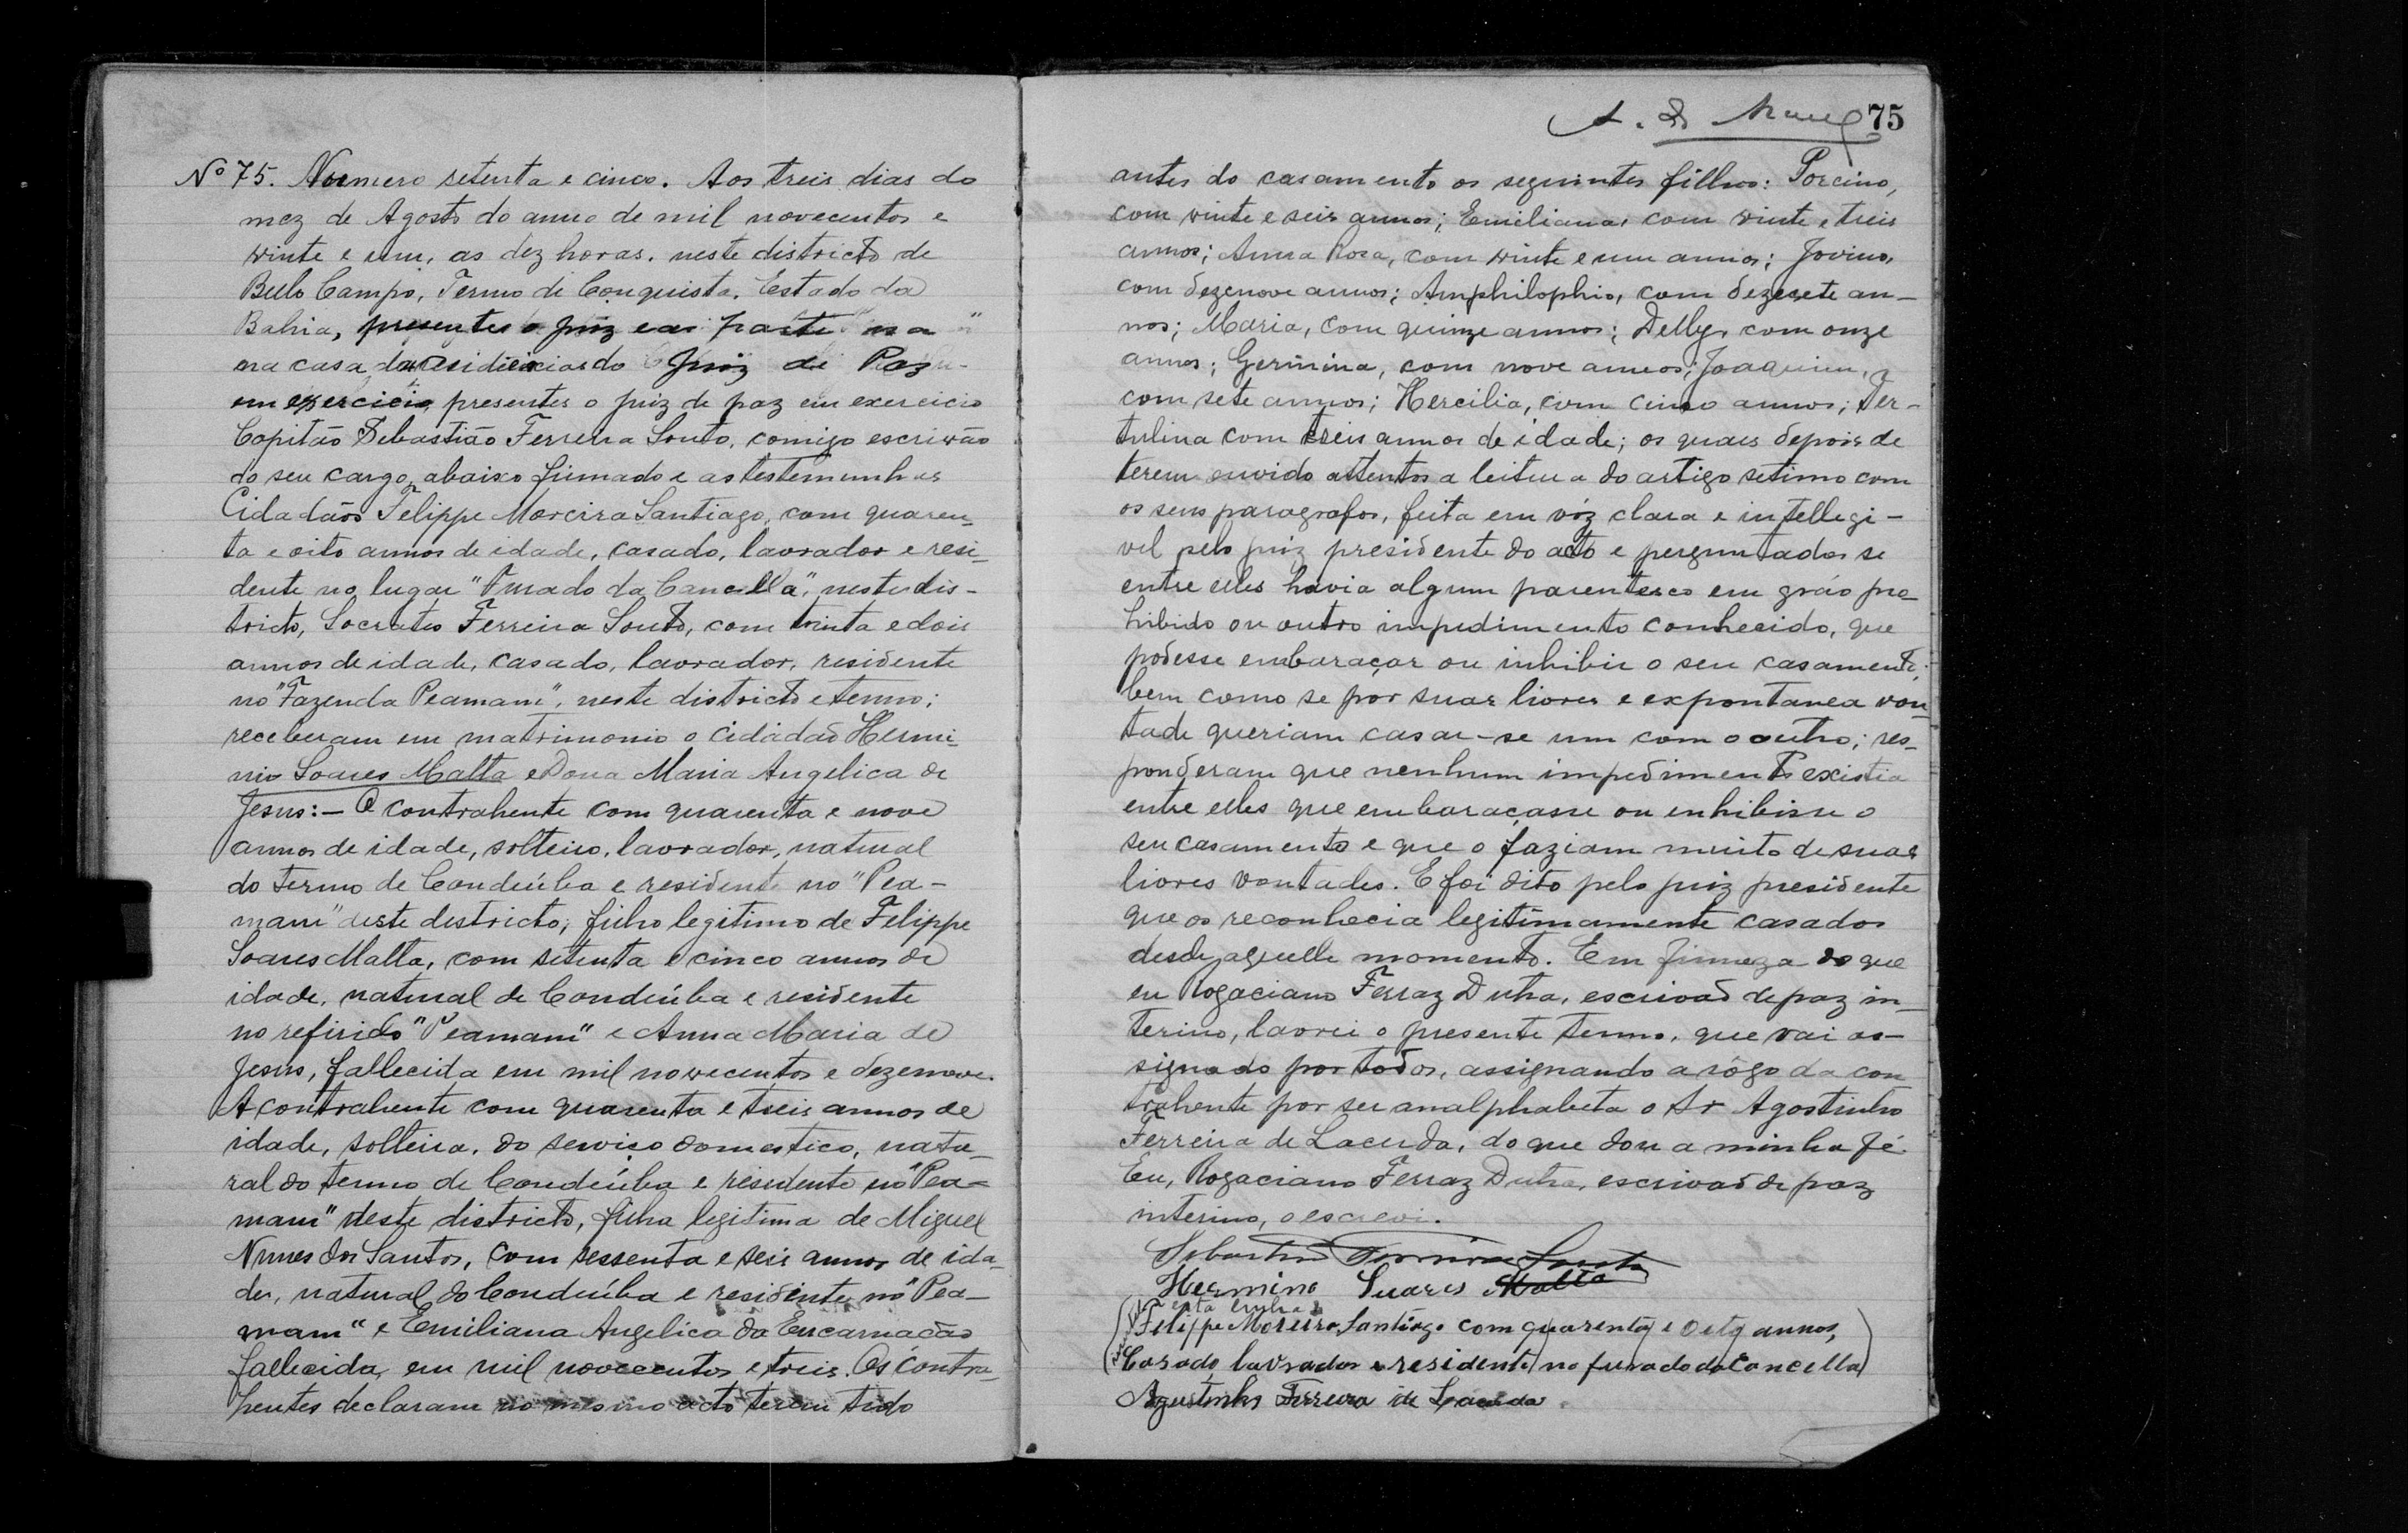 Nº 75. Numero setenta e cinco. Aos treis dias do
mez de Agosto do anno de mil novecentos e
vinte e um, as dez horas, neste districto de
Bello Campo, Termo de Conquista, Estado da
Bahia, presentes o juiz e as parte na
na casa da residencia do Juiz de Paz
em exercicio, presentes o juiz de paz em exercicio
Capitão Sebastião Ferreira Souto, comigo escrivão
do seu cargo, abaixo firmado e as testemunhas
Cidadãos Felippe Moreira Santiago, com quaren-
ta e oito annos de idade, casado, lavrador e resi-
dente no lugar "Furado da Cancella", neste dis-
tricto, Socrates Ferreira Souto, com trinta e dois
annos de idade, casado, lavrador, residente
no "Fazenda Peamam", neste districto e termo;
receberam em matrimonio o cidadão Hermi-
nio Soares Malta e Dona Maria Angelica de
Jesus:— O contrahente com quarenta e nove
annos de idade, solteiro, lavrador, natural
do termo de Condeúba e residente no "Pea-
mam" deste districto, filho legitimo de Felippe
Soares Malta, com setenta e cinco annos de
idade, natural de Condeúba e residente
no referido "Peamam" e Anna Maria de
Jesus, fallecida em mil novecentos e dezenove.
A contrahente com quarenta e treis annos de
idade, solteira, do serviço domestico, natu-
ral do termo de Condeúba e residente no "Pea-
mam" deste districto, filha legitima de Miguel
Nunes dos Santos, com sessenta e seis annos de ida-
de, natural do Condeúba e residente no "Pea-
mam" e Emiliana Angelica da Encarnacão
fallecida, em mil novecentos e treis. Os contra-
hentes declaram no mesmo acto terem tido
75
antes do casamento os seguintes filhos: Porcino,
com vinte e seis annos; Emiliana, com vinte e treis
annos; Anna Rosa, com vinte e um annos; Jovino,
com dezenove annos; Amphilophio, com dezesete an-
nos; Maria, com quinze annos; Delly, com onze
annos; Germina, com nove annos; Joaquim,
com sete annos; Hercilia, com cinco annos; Ter-
tulina com treis annos de idade; os quaes depois de
terem ouvido attentos a leitura do artigo setimo com
os seus paragrafos, feita em vóz clara e intellegi-
vel pelo juiz presidente do acto e perguntados se
entre elles havia algum parentesco em gráo pro-
hibido ou outro impedimento conhecido, que
podesse embaraçar ou inhibir o seu casamento;
bem como se por suas livres e expontanea von-
tade queriam casar-se um com o outro; res-
ponderam que nenhum impedimento existia
entre elles que embaraçasse ou enhibisse o
seu casamento e que o faziam muito de suas
livres vontades. E foi dito pelo juiz presidente
que os reconhecia legitimamente casados
desde aquelle momento. Em firmeza do que
eu Rogaciano Ferraz Dutra, escrivão de paz in-
terino, lavrei o presente termo, que vai as-
signado por todos, assignando a rôgo da con
trahente por ser analphabeta o Sr Agostinho
Ferreira de Lacerda, do que dou a minha fé.
Eu, Rogaciano Ferraz Dutra, escrivão de paz
interino, o escrevi.
Sebastião Ferreira Souto
Hermino Suares Malta
Felippe Moreira Santiago com quarenta e oito annos,
Casado, lavrador e residente no furado da Cancella
Agustinho Ferreira de Lacerda